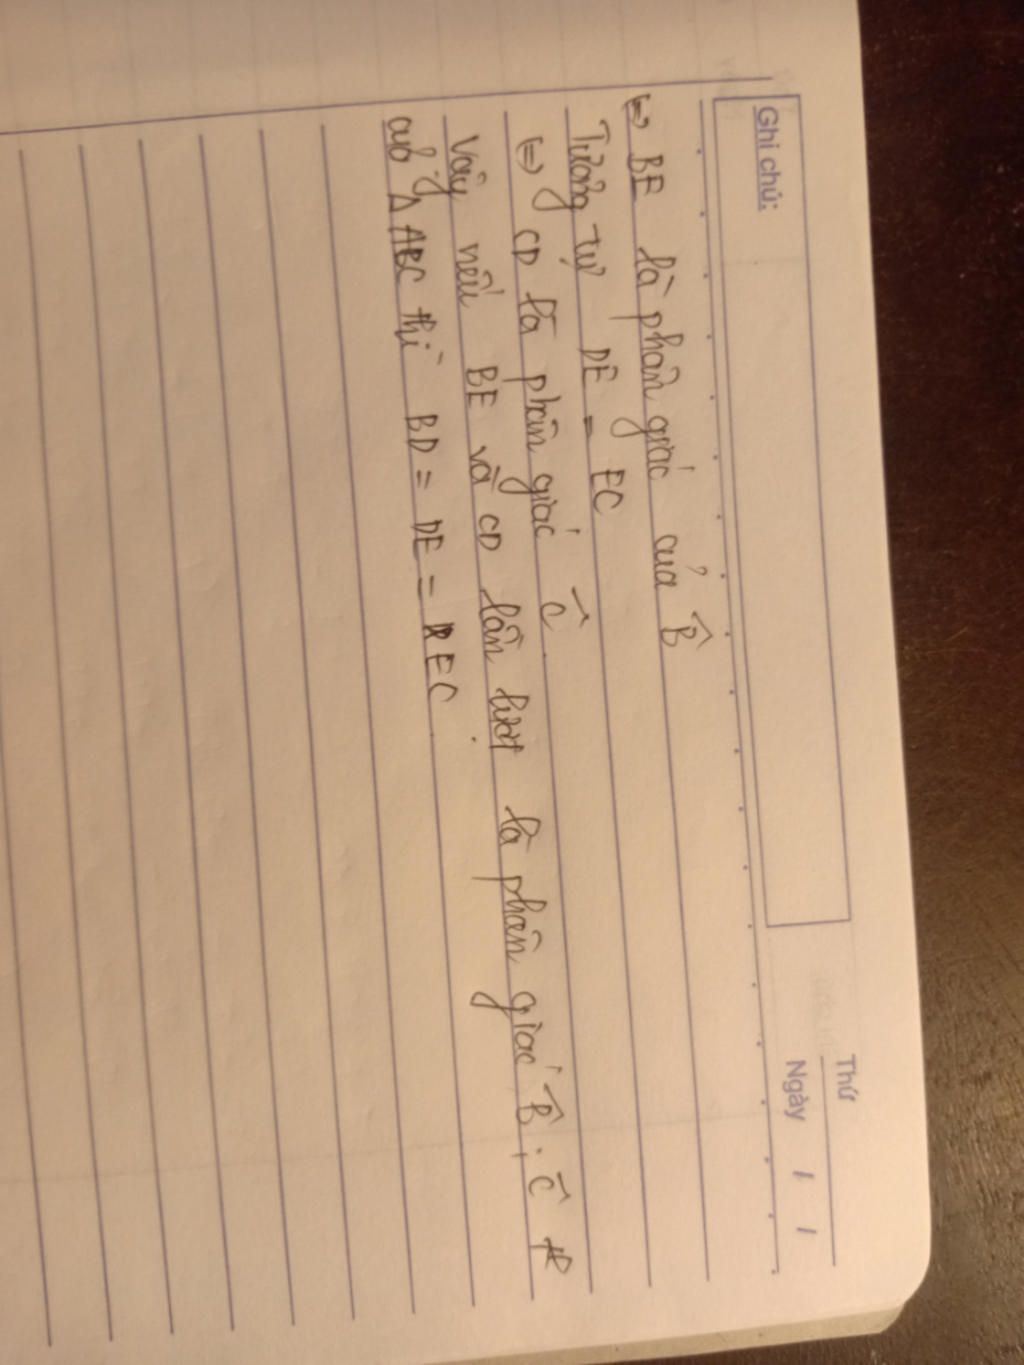 Ghi chú:
Thứ
Ngày / /
⇔ BE là phân giác của B̂
Tương tự DE = EC
⇔ CD là phân giác Ĉ
Vậy nếu BE và CD lần lượt là phân giác B̂, Ĉ
của Δ ABC thì BD = DE = EC